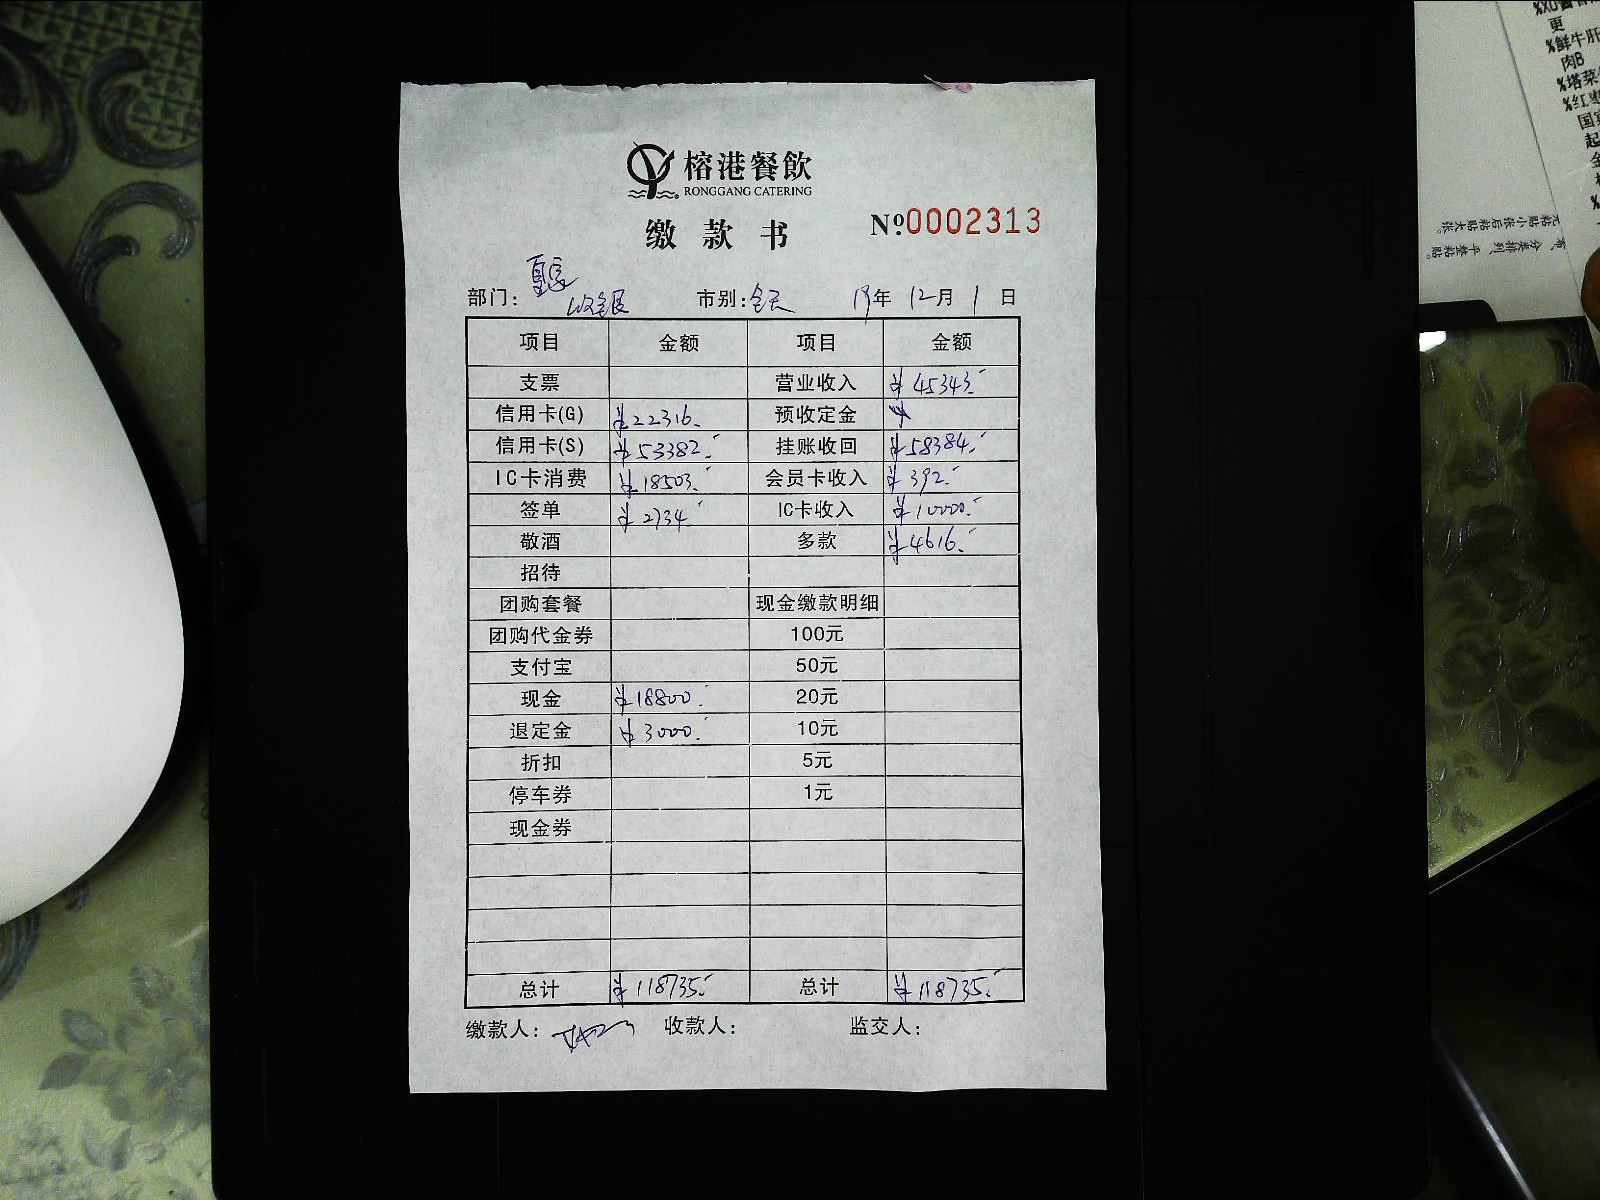 榕港餐飲
RONGGANG CATERING
缴款书
№0002313
部门: 收银 市别: 全天 19年 12月 1日
项目 金额 项目 金额
支票 营业收入 ¥45343.-
信用卡(G) ¥22316.- 预收定金 ¥
信用卡(S) ¥53382.- 挂账收回 ¥58384.-
IC卡消费 ¥18503.- 会员卡收入 ¥392.-
签单 ¥2734.- IC卡收入 ¥10000.-
敬酒 多款 ¥4616.-
招待
团购套餐 现金缴款明细
团购代金券 100元
支付宝 50元
现金 ¥18800.- 20元
退定金 ¥3000.- 10元
折扣 5元
停车券 1元
现金券
总计 ¥118735.- 总计 ¥118735.-
缴款人: 收款人: 监交人:
更
%鲜牛肝
肉B
%塔菜
%红枣
国
起
粘贴小张后粘贴大张。
分类排列、平整粘贴。